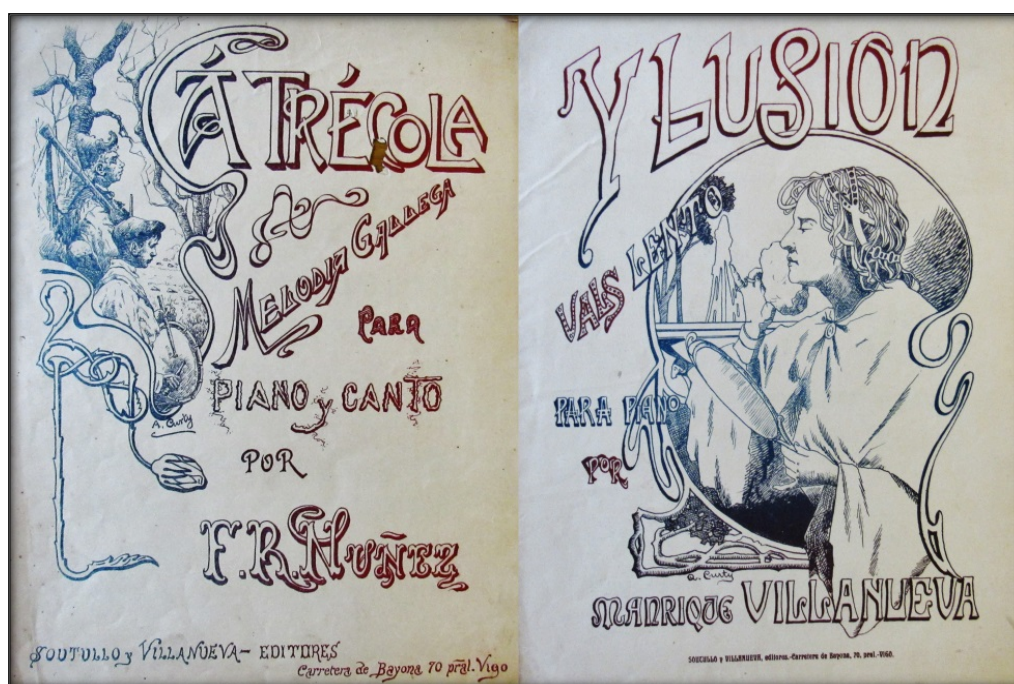 Á TRÉCOLA
MELODIA GALLEGA
PARA
PIANO y CANTO
POR
F. R. NUÑEZ
A. Curty
SOUTULLO y VILLANUEVA- EDITORES
Carretera de Bayona, 70 pral. Vigo
YLUSION
VALS LENTO
PARA PIANO
POR
A. Curty
MANRIQUE VILLANUEVA
SOUTULLO y VILLANUEVA, editores.-Carretera de Bayona, 70, pral.-VIGO.